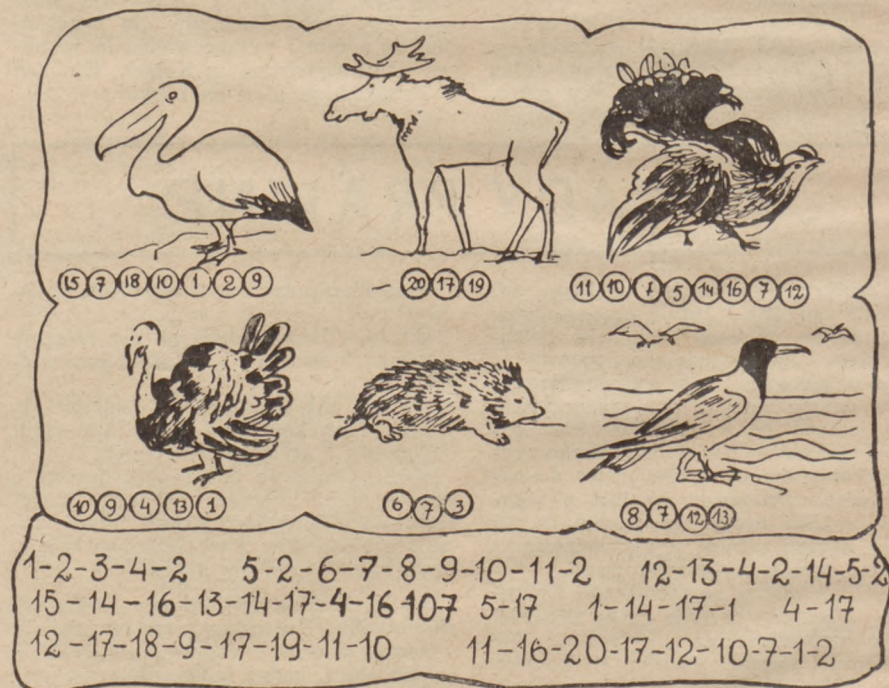 15 7 18 10 1 2 9
20 17 19
11 10 7 5 14 16 7 12
10 9 4 13 1
6 7 3
8 7 12 13
1-2-3-4-2 5-2-6-7-8-9-10-11-2 12-13-4-2-14-5-2
15-14-16-13-14-17-4-16-107 5-17 1-14-17-1 4-17
12-17-18-9-17-19-11-10 11-16-20-17-12-10-7-1-2